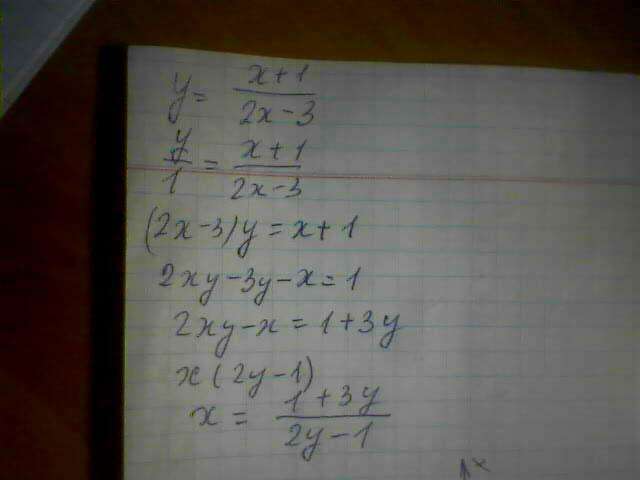 y = x+1 / 2x-3
y/1 = x+1 / 2x-3
(2x-3)y = x+1
2xy-3y-x=1
2xy-x=1+3y
x(2y-1)
x = 1+3y / 2y-1
x